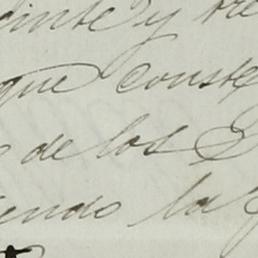 veinte y tre
que conste
de los S
endo la f